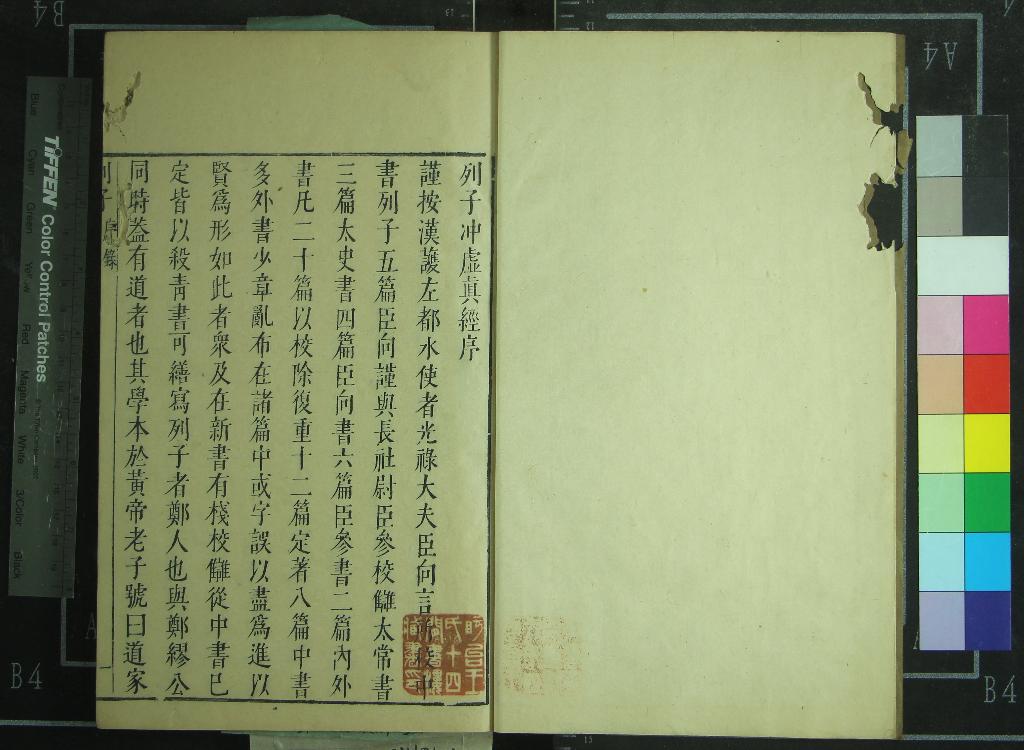 列子冲虛眞經序
謹按漢護左都水使者光祿大夫臣向言所校中
書列子五篇臣向謹與長社尉臣參校讎太常書
三篇太史書四篇臣向書六篇臣參書二篇內外
書凡二十篇以校除復重十二篇定著八篇中書
多外書少章亂布在諸篇中或字誤以盡爲進以
賢爲形如此者衆及在新書有棧校讎從中書已
定皆以殺青書可繕寫列子者鄭人也與鄭繆公
同時葢有道者也其學本於黃帝老子號曰道家
列子 序錄
TIFFEN Color Control Patches
Blue Cyan Green Yellow Red Magenta White 3/Color Black
A4
B4
B4
B4